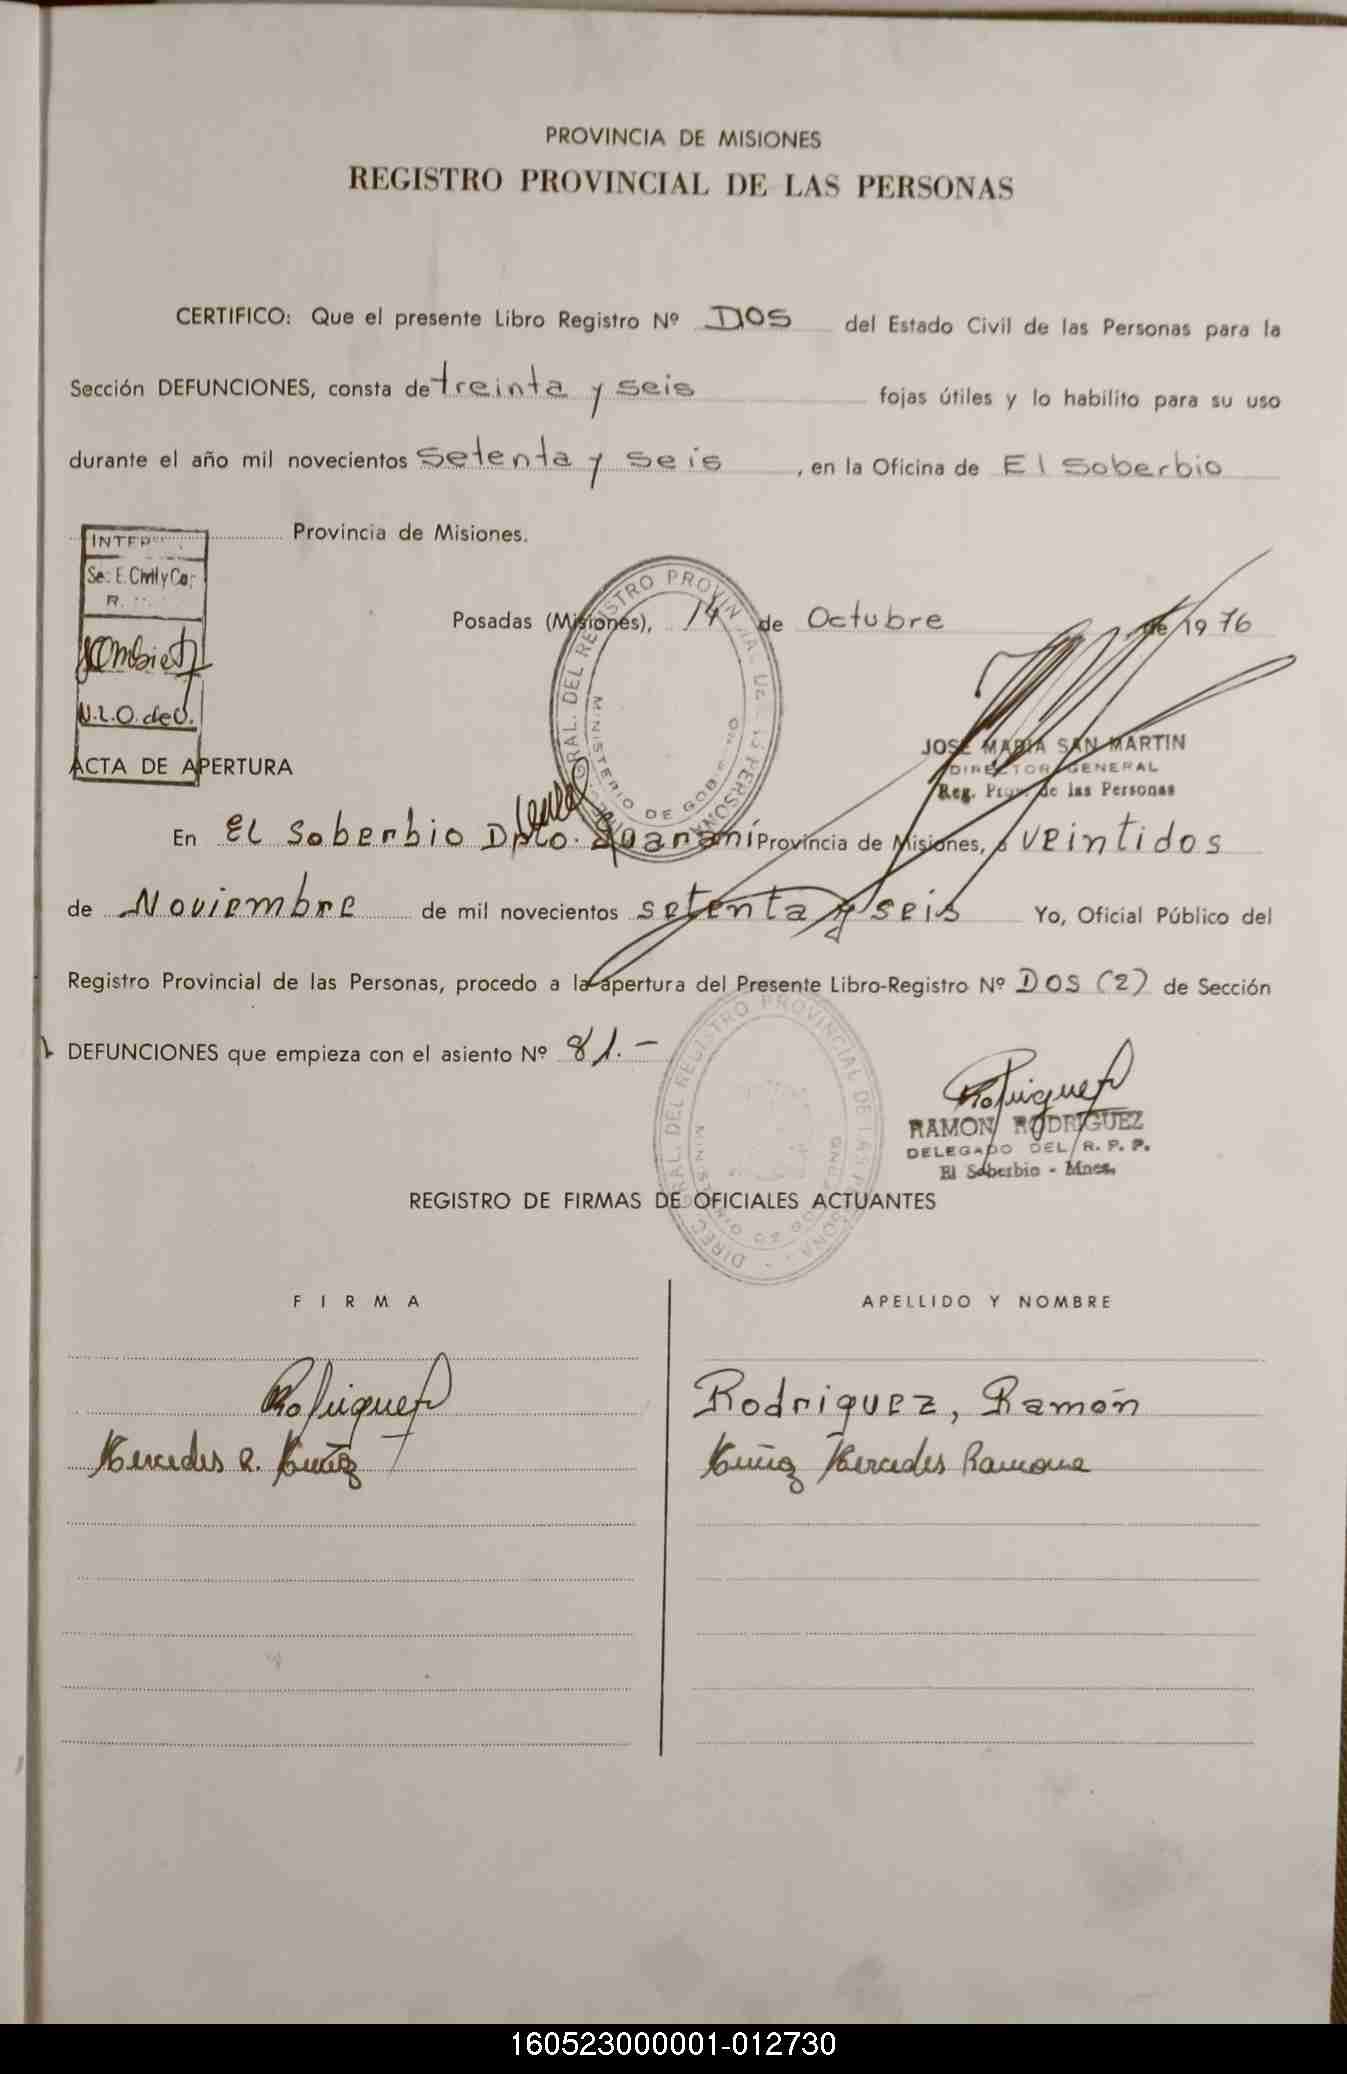 PROVINCIA DE MISIONES
REGISTRO PROVINCIAL DE LAS PERSONAS
CERTIFICO: Que el presente Libro Registro Nº DOS del Estado Civil de las Personas para la
Sección DEFUNCIONES, consta de treinta y seis fojas útiles y lo habilito para su uso
durante el año mil novecientos setenta y seis, en la Oficina de El Soberbio
Provincia de Misiones.
INTER
Se: E. Civil y Ca;
R.
V.L.O. de V.
Posadas (Misiones), 14 de Octubre de 1976
JOSE MARIA SAN MARTIN
DIRECTOR GENERAL
Reg. Prov. de las Personas
ACTA DE APERTURA
En El Soberbio Dpto. Guaraní Provincia de Misiones, a veintidos
de Noviembre de mil novecientos setenta y seis Yo, Oficial Público del
Registro Provincial de las Personas, procedo a la apertura del Presente Libro-Registro Nº DOS (2) de Sección
DEFUNCIONES que empieza con el asiento Nº 81.-
RAMON RODRIGUEZ
DELEGADO DEL R. P. P.
El Soberbio - Mnes.
REGISTRO DE FIRMAS DE OFICIALES ACTUANTES
FIRMA APELLIDO Y NOMBRE
Rodriguez Rodriguez, Ramón
Mercedes R. Muñoz Muñoz Mercedes Ramona
160523000001-012730